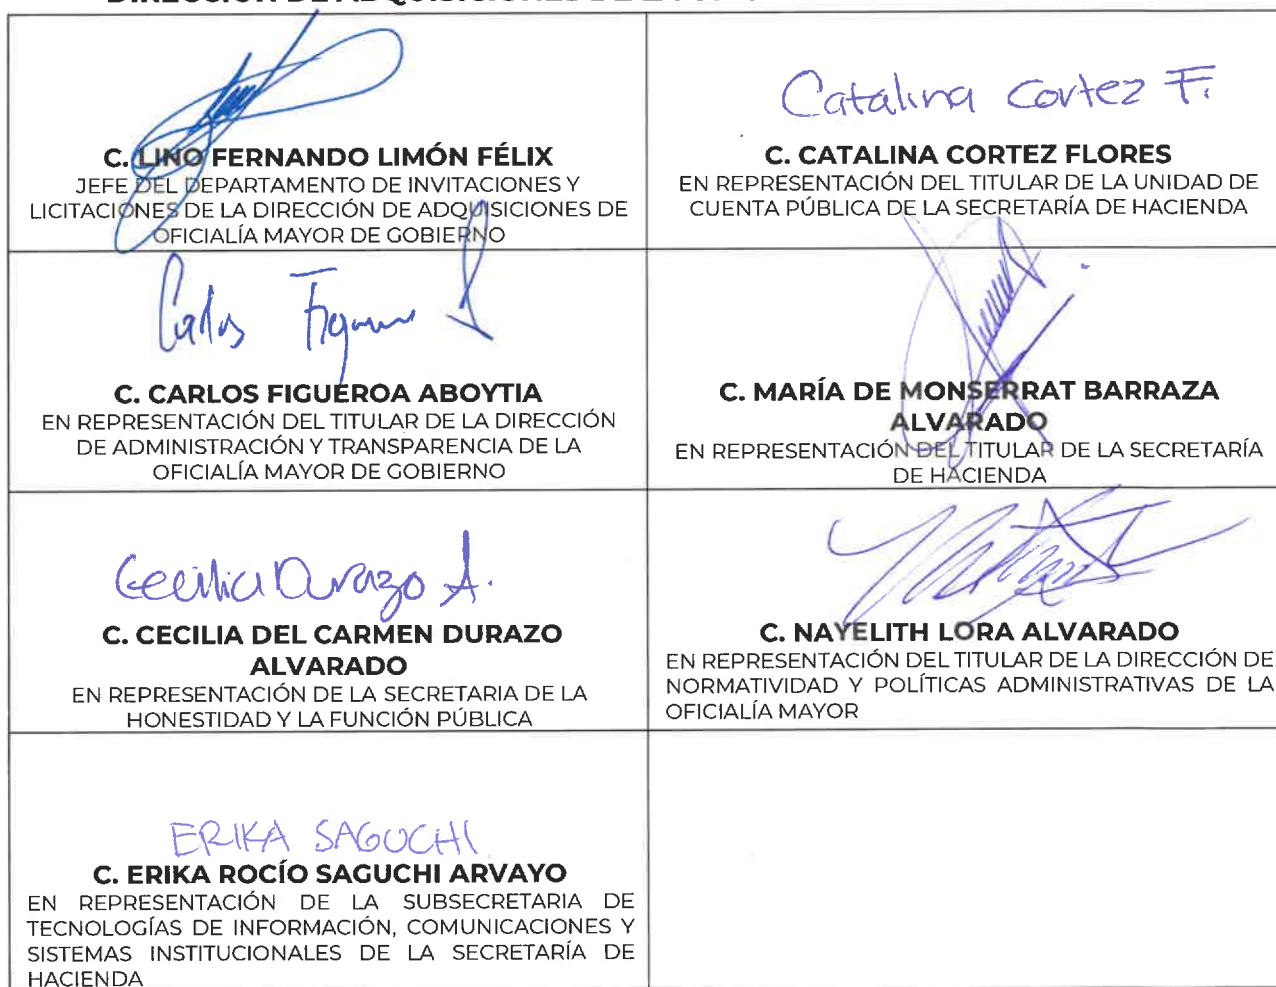 C. LINO FERNANDO LIMÓN FÉLIX
JEFE DEL DEPARTAMENTO DE INVITACIONES Y
LICITACIONES DE LA DIRECCIÓN DE ADQUISICIONES DE
OFICIALÍA MAYOR DE GOBIERNO
Catalina Cortez F.
C. CATALINA CORTEZ FLORES
EN REPRESENTACIÓN DEL TITULAR DE LA UNIDAD DE
CUENTA PÚBLICA DE LA SECRETARÍA DE HACIENDA
Carlos Figueroa
C. CARLOS FIGUEROA ABOYTIA
EN REPRESENTACIÓN DEL TITULAR DE LA DIRECCIÓN
DE ADMINISTRACIÓN Y TRANSPARENCIA DE LA
OFICIALÍA MAYOR DE GOBIERNO
C. MARÍA DE MONSERRAT BARRAZA
ALVARADO
EN REPRESENTACIÓN DEL TITULAR DE LA SECRETARÍA
DE HACIENDA
Cecilia Durazo A.
C. CECILIA DEL CARMEN DURAZO
ALVARADO
EN REPRESENTACIÓN DE LA SECRETARIA DE LA
HONESTIDAD Y LA FUNCIÓN PÚBLICA
C. NAYELITH LORA ALVARADO
EN REPRESENTACIÓN DEL TITULAR DE LA DIRECCIÓN DE
NORMATIVIDAD Y POLÍTICAS ADMINISTRATIVAS DE LA
OFICIALÍA MAYOR
ERIKA SAGUCHI
C. ERIKA ROCÍO SAGUCHI ARVAYO
EN REPRESENTACIÓN DE LA SUBSECRETARIA DE
TECNOLOGÍAS DE INFORMACIÓN, COMUNICACIONES Y
SISTEMAS INSTITUCIONALES DE LA SECRETARÍA DE
HACIENDA